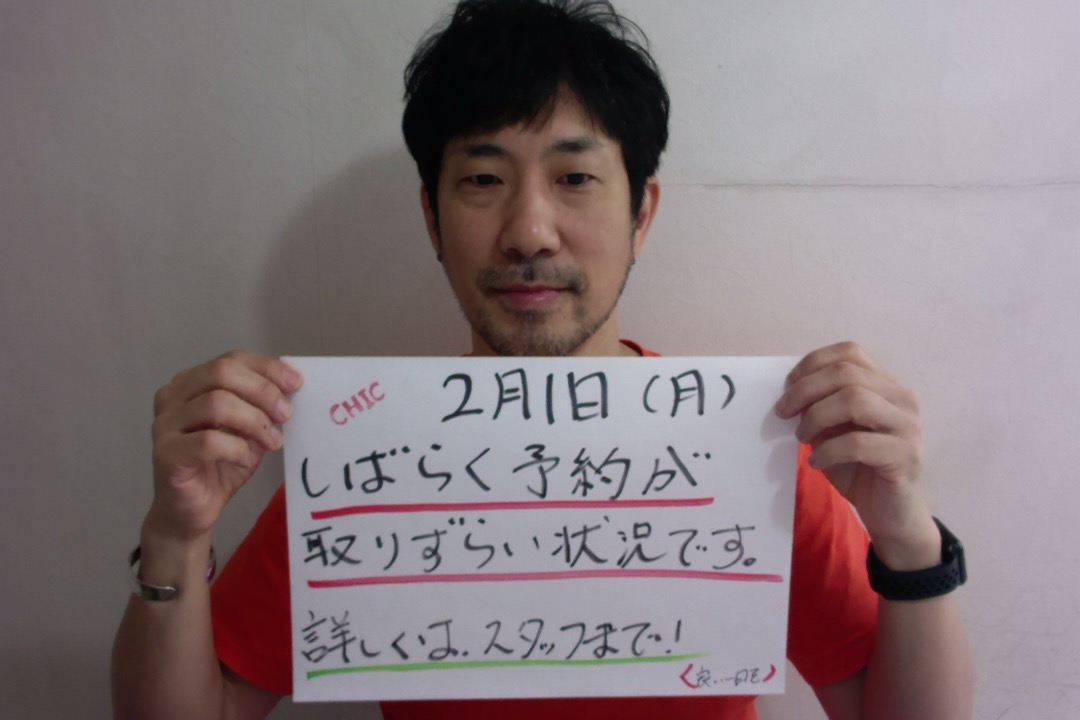 CHIC
2月1日(月)
しばらく予約が
取りずらい状況です。
詳しくは、スタッフまで!
良い一日を